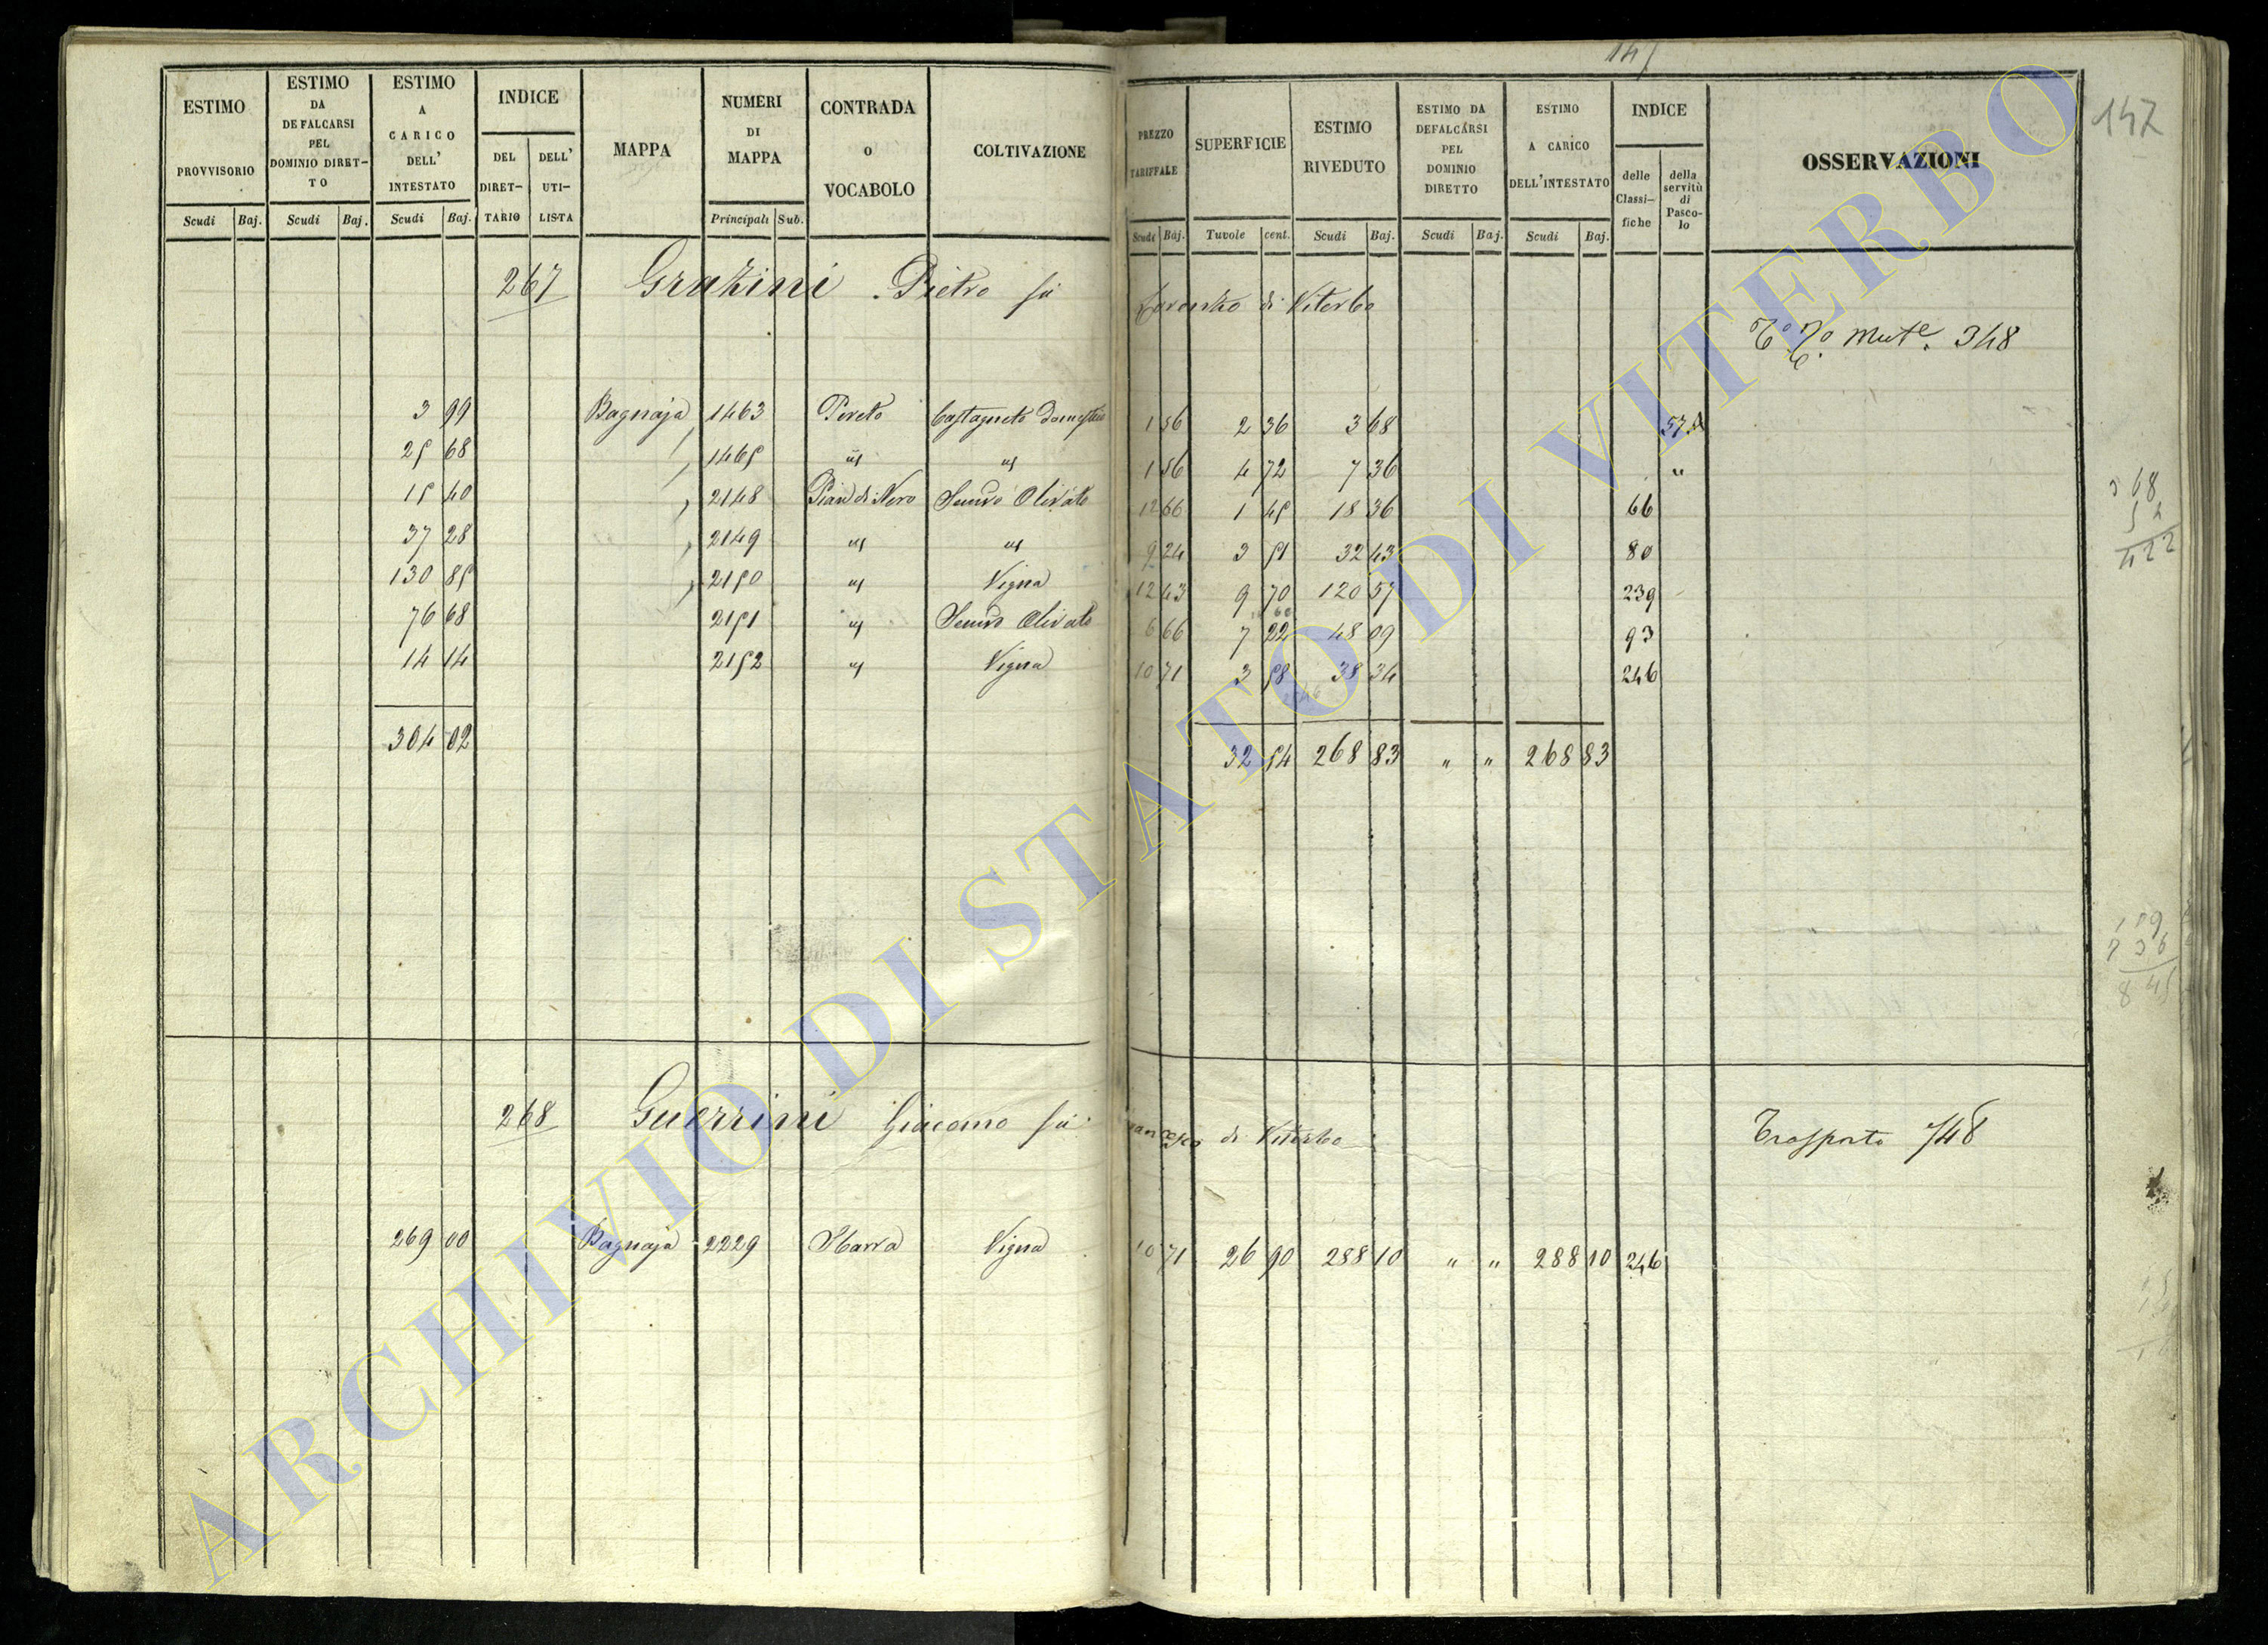 147
147
ESTIMO PROVVISORIO
ESTIMO DA DEFALCARSI PEL DOMINIO DIRET-TO
ESTIMO A CARICO DELL' INTESTATO
INDICE
DEL DIRET-TARIO
DELL' UTI-LISTA
MAPPA
NUMERI DI MAPPA
CONTRADA o VOCABOLO
COLTIVAZIONE
PREZZO TARIFFALE
SUPERFICIE
ESTIMO RIVEDUTO
ESTIMO DA DEFALCARSI PEL DOMINIO DIRETTO
ESTIMO A CARICO DELL'INTESTATO
INDICE
delle Classi-fiche
della servitù di Pasco-lo
OSSERVAZIONI
Scudi Baj. Scudi Baj. Scudi Baj. Principali Sub. Scudi Baj. Tavole cent. Scudi Baj. Scudi Baj. Scudi Baj.
267 Grazini Pietro fu Lorenzo di Viterbo
Mute. 348
3 99 Bagnaja 1463 Pereto Castagneto Domestico 1 56 2 36 3 68 57
25 68 1465 " " 1 56 4 72 7 36 "
15 40 2148 Pian di Nero Semvo Olivato 12 66 1 45 18 36 66
37 28 2149 " " 9 24 3 51 32 43 80
130 85 2150 " Vigna 12 43 9 70 120 57 239
76 68 2151 " Semvo Olivato 6 66 7 22 48 09 93
14 14 2152 " Vigna 10 71 3 58 38 34 246
304 02 32 54 268 83 " " 268 83
3 68
54
422
1 09
7 36
8 45
268 Guerrini Giacomo fu Francesco di Viterbo
Trasporto 748
269 00 Bagnaja 2229 Sbarra Vigna 10 71 26 90 288 10 " " 288 10 246
ARCHIVIO DI STATO DI VITERBO